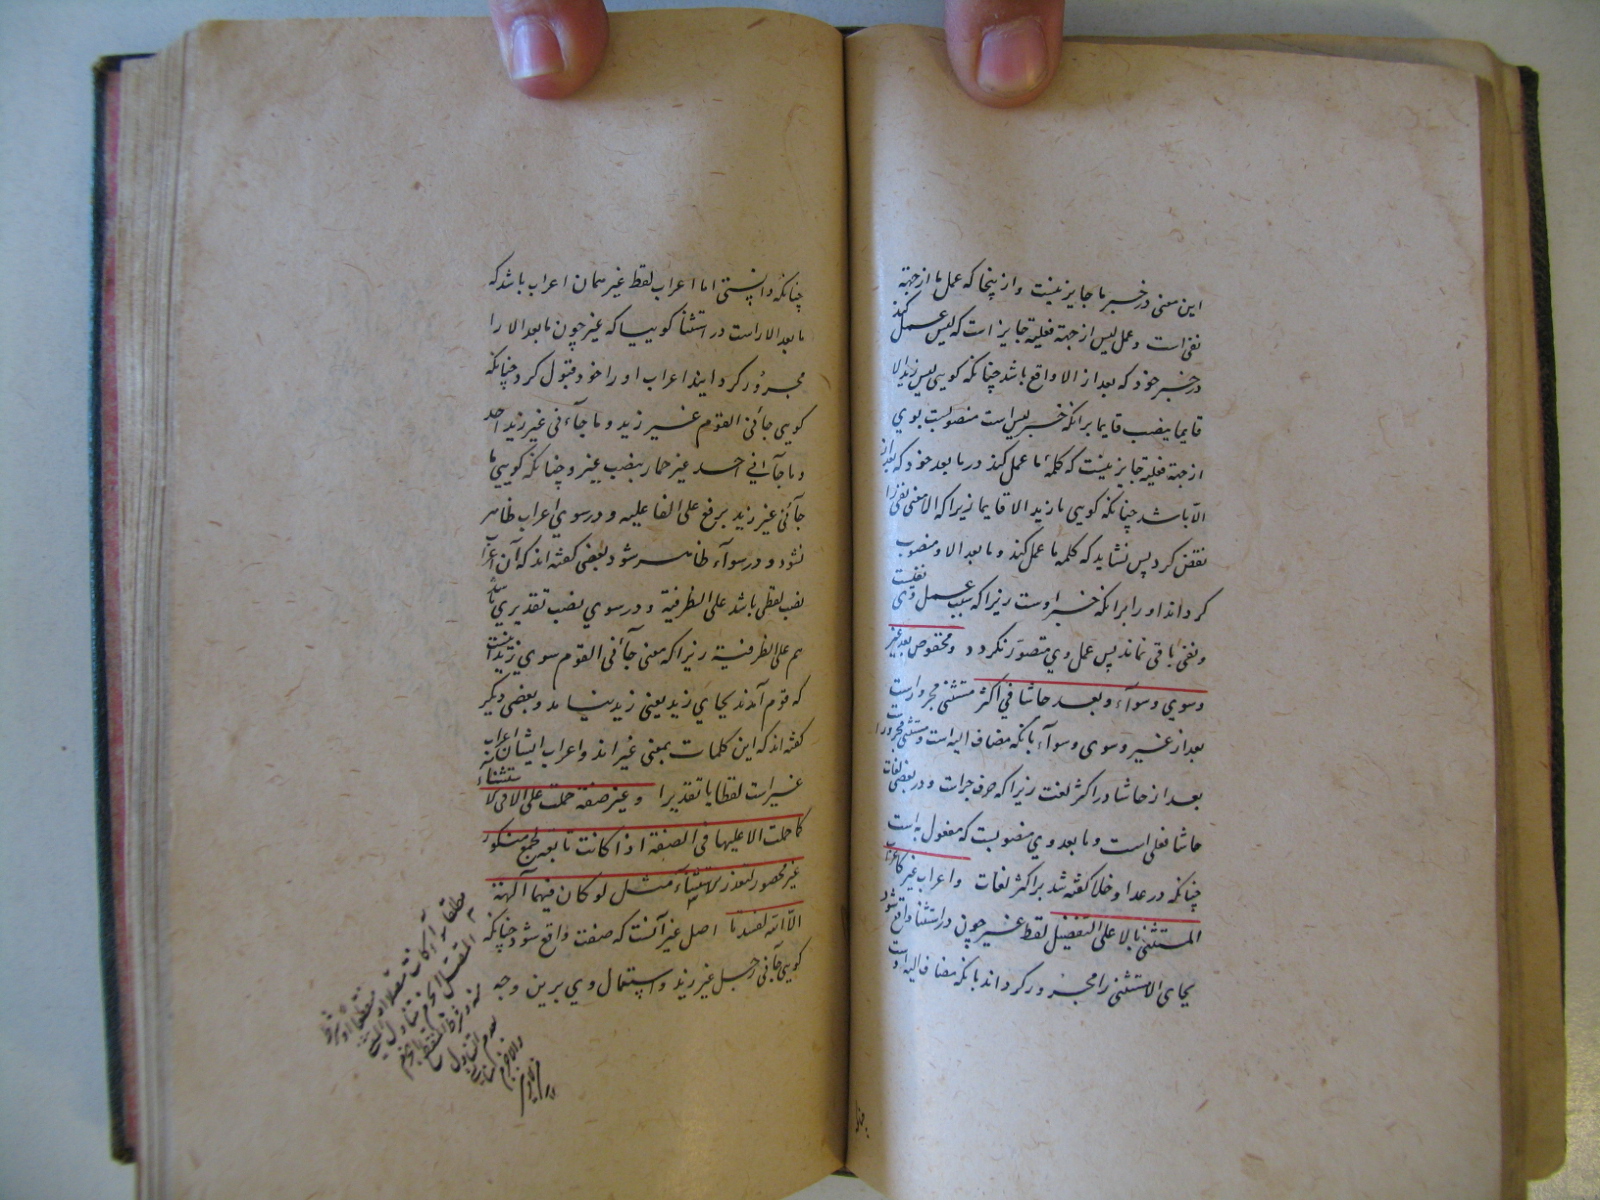 این معنی در خبر ما جایز نیست و از ینجا که عمل ما از جهة
نفی است و عمل لیس از جهة فعلیة جایز است که لیس عمل کند
در خبر خود که بعد از الا واقع باشد چنانکه کویی لیس زید الا
قایما بنصب قایما برانکه خبر لیس است منصوبست بوی
از جهة فعلیة جایز نیست که کلمۀ ما عمل کند در ما بعد خود که بعد از
الا باشد چنانکه کویی ما زید الا قایما زیرا که الا معنی نفی را
نقض کرد پس نشاید که کلمه ما عمل کند و ما بعد الا و منصوب
کرداند او را برانکه خبر اوست زیرا که سبب عمل وی نفیست
و نفی باقی نماند پس عمل وی متصور نکردد و مخفوض بعد غیر
و سوی و سوآء و بعد حاشا فی اکثر مستثنی مجرور است
بعد از غیر و سوی و سوآء بانکه مضاف الیه است و مستثنی مجرور
بعد از حاشا در اکثر لغت زیرا که حرف جرات و در بعضی لغات
حاشا فعلی است و ما بعد وی منصوبست که مفعول به است
چنانکه در عدا و خلا کفته شد بر اکثر لغات و اعراب غیر کاعراب
المستثنی بالا علی التفضیل لفظ غیر چون در استثنا واقع شود
بجای الا مستثنی را مجرور کرداند بانکه مضاف الیه است
چنانکه
چنانکه دانستی اما اعراب لفظ غیر همان اعراب باشد که
ما بعد الا راست در استثنا کوییا که غیر چون ما بعد الا را
مجرور کردانید اعراب او را خود قبول کرد چنانکه
کویی جآنی القوم غیر زید و ما جآءنی غیر زید احد
و ما جآانی احد غیر حمار بنصب غیر و چنانکه کویی ما
جآنی غیر زید برفع علی الفاعلیه و در سوی اعراب ظاهر
نشود و در سوآء ظاهر شود بعضی کفته اند که آن اعراب
نصب لفظی باشد علی الظرفیة و در سوی نصب تقدیری باشد
هم علی الظرفیة زیرا که معنی جآنی القوم سوی زید آنست
که قوم آمدند بجای زید یعنی زید نیامد و بعضی دیگر
کفته اند که این کلمات بمعنی غیر اند و اعراب ایشان اعراب
غیر است لفظا یا تقدیرا و غیر صفة حملت علی الا فی الاستثناء
کما حملت الا علیها فی الصفة اذا کانت تابعة لجمع منکور
غیر محصور لتعذر الاستثنآء مثل لو کان فیهما آلهة
الا الله لفسدتا اصل غیر آنست که صفت واقع شود چنانکه
کویی جآنی رجل غیر زید و استعمال وی برین وجه